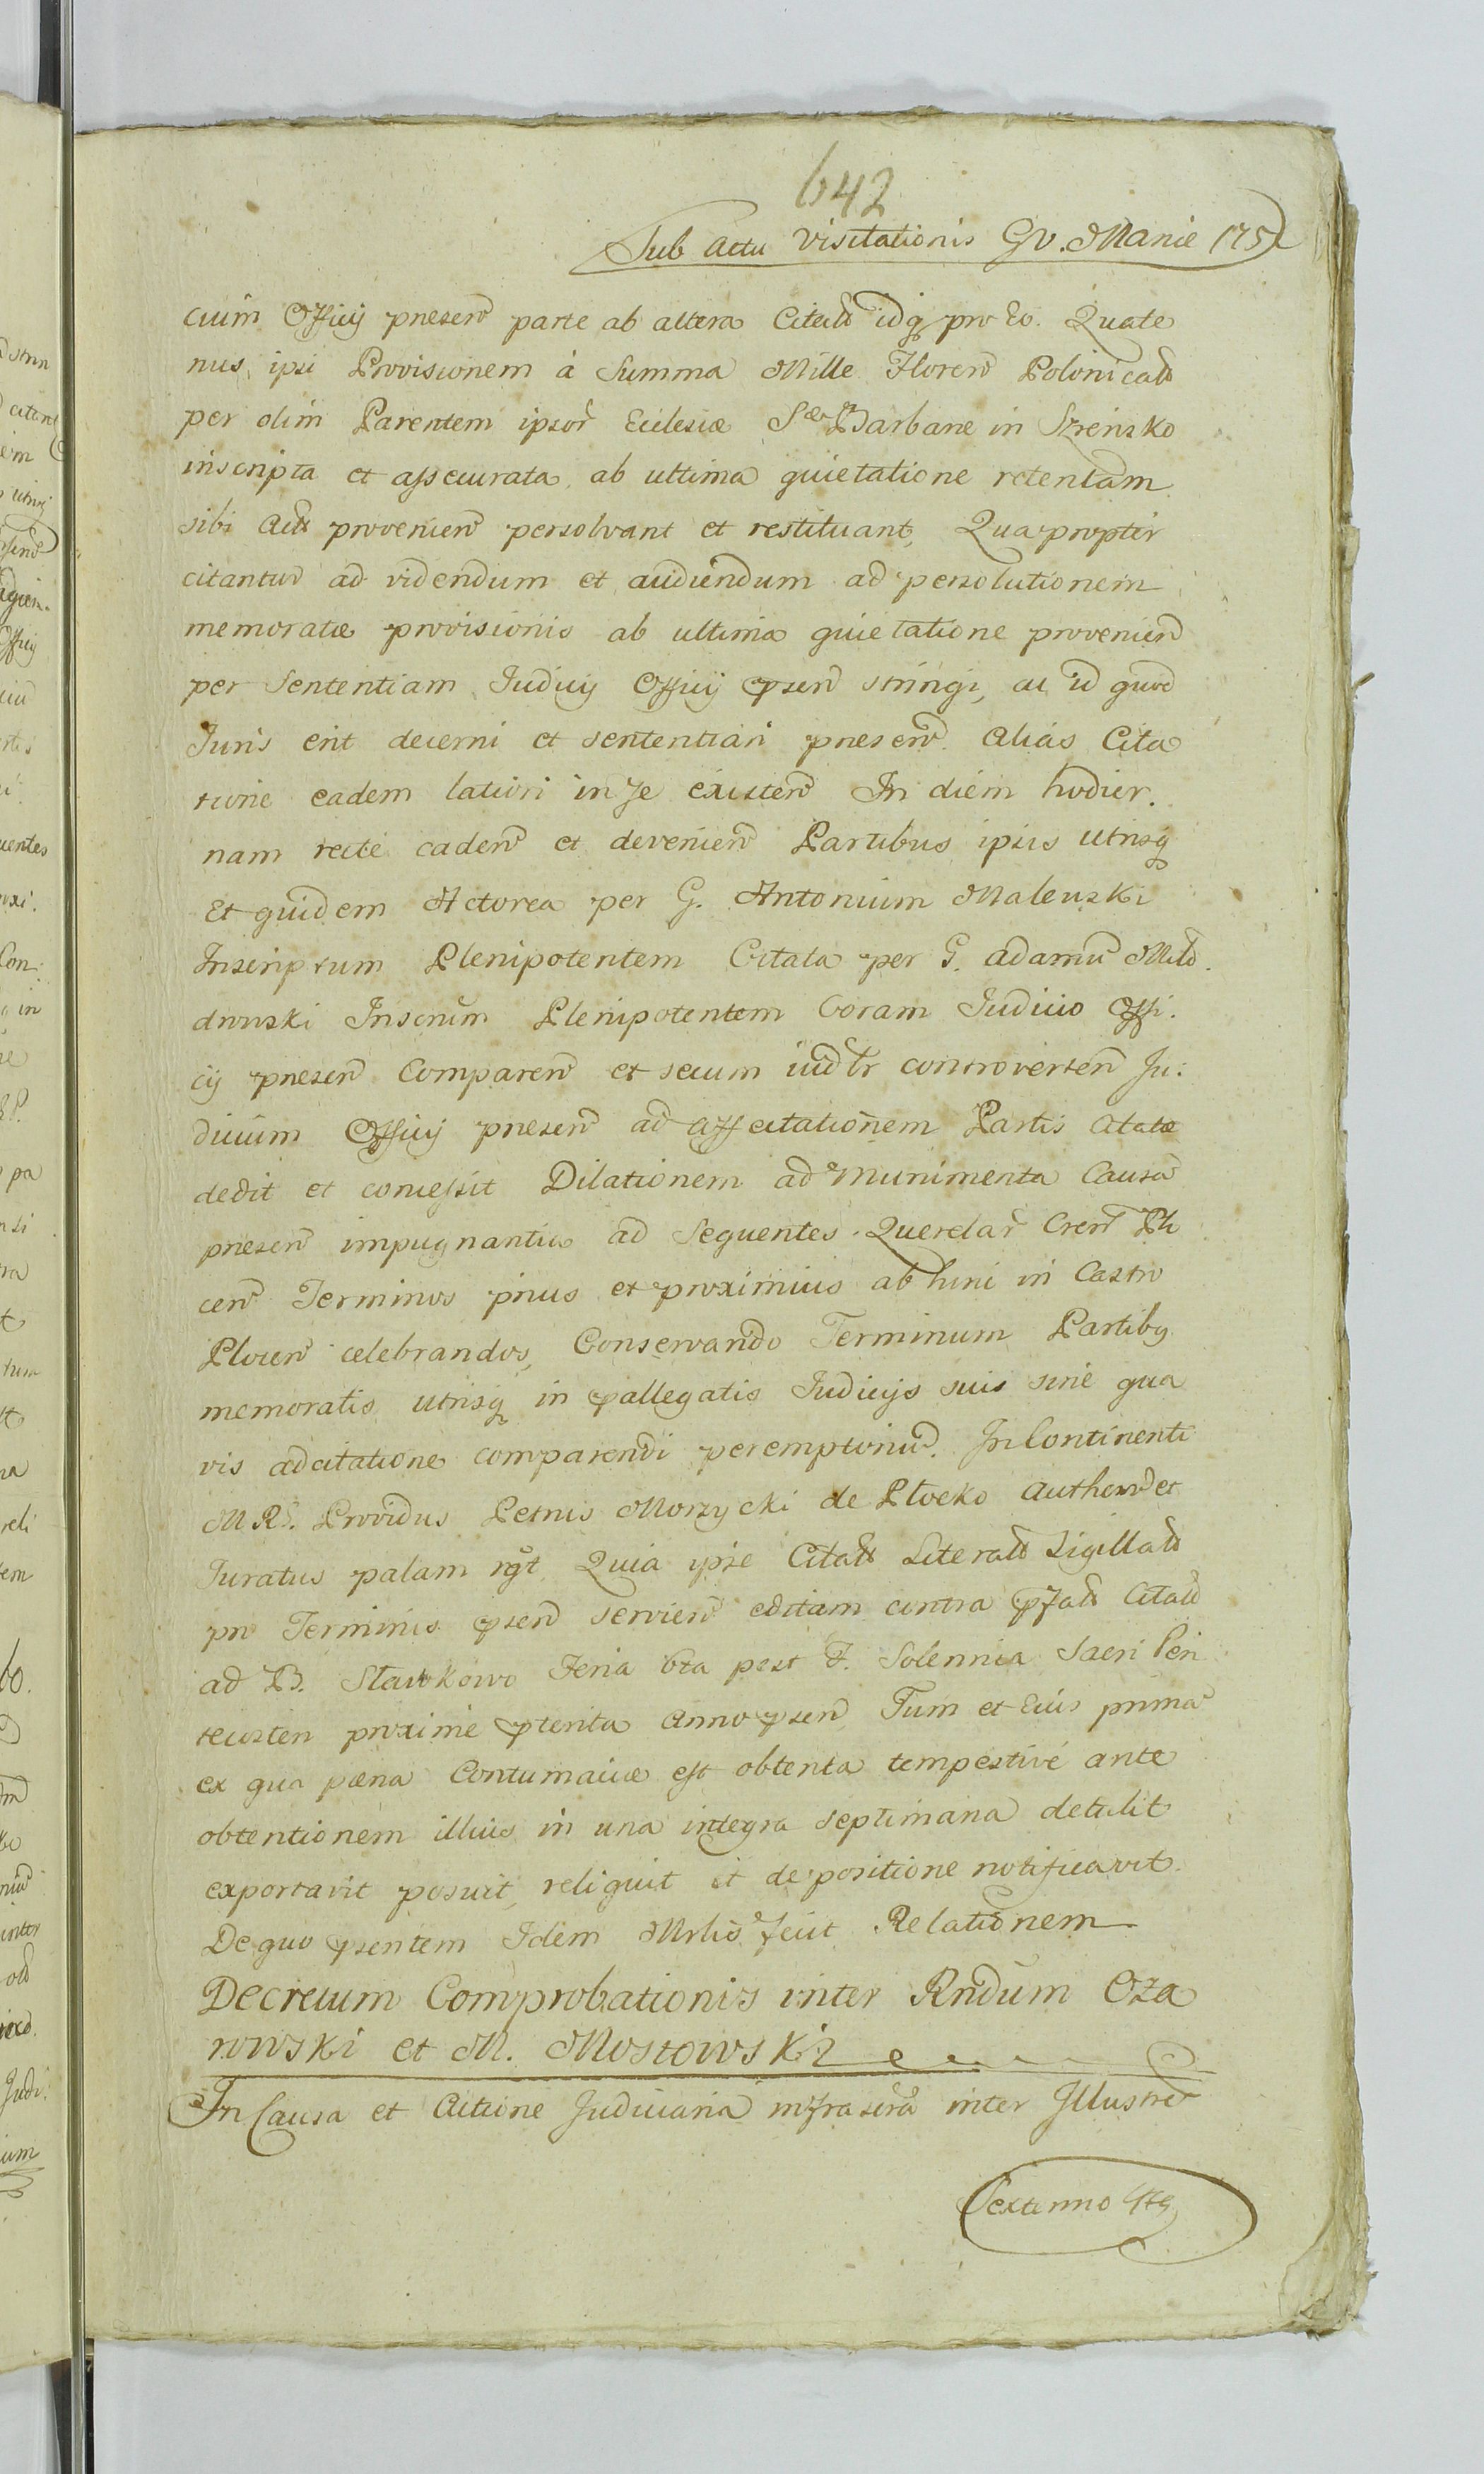 642
Sub Actu Visitationis GV. Mariæ 175
cium Officij præsen parte ab altera Citat idq pro Eo. Quate
nus ipsi Provisionem à Summa Mille Floren Polonical
per olim Parentem ipsor Ecclesiæ Sæ Barbaræ in Szrensko
inscripta et assecurata ab ultima quietatione retentam
sibi Act provenien persolvant et restituant, Qua propter
citantur ad videndum et audiendum ad persolutionem
memoratæ provisionis ab ultima quietatione provenien
per Sententiam Judicij Officij psen stringi, ac id quod
Juris erit decerni et sententiari præsen. Alias Cita
tione eadem latiori in se existen In diem hodier.
nam recte caden et devenien Partibus ipsis utrisq
Et quidem Actorea per G. Antonium Malewski
Inscriptum Plenipotentem Citata per G. Adamu Mlo
dowski Inscrum Plenipotentem Coram Judicio Offi.
cij præsen Comparen et secum iudlr controverten Ju:
dicium Officij præsen ad affectationem Partis Citatæ
dedit et concessit Dilationem ad Munimenta Causa
præsen impugnantia ad Sequentes Querelar Cren Plo
cen Terminos prius et proximius ab hinc in Castro
Plocen celebrandos, Conservando Terminum Partibq
memoratis utrisq in pallegatis Judicijs suis sine qua
vis adcitatione comparendi peremptoriu. In Continenti
M R. Providus Petrus Morzycki de Płocko Authen et
Juratus palam rgt Quia ipse Citat Literat Sigillat
pn Terminis psen servien editam contra pfat Citat
ad B. Sławkowo Feria 6ta post F. Solennia Sacri Pen
tecosten proxime pterita Anno psen Tum et Eius prima
ex qua pæna Contumaciæ est obtenta tempestivé ante
obtentionem illius in una integra septimana detulit
exportavit posuit, reliquit et depositione notificavit.
De quo psentem Idem Mrlis fecit Relationem
Decretum Comprobationis inter Rndum Oza
rowski et M. Mostowski
In Causa et Actione Judiciaria infrascra inter Illustre